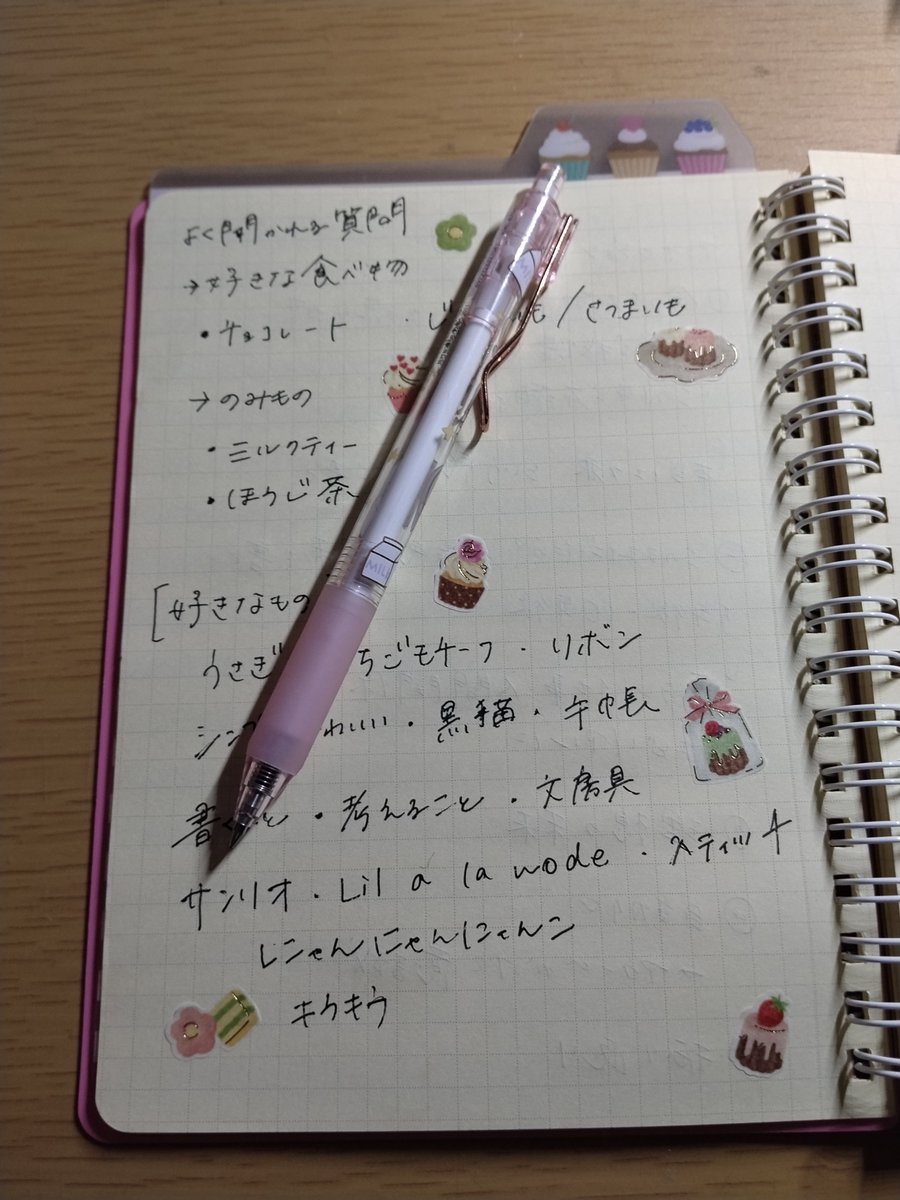 よく聞かれる質問
→好きな食べ物
・チョコレート ・じ いも/さつまいも
→のみもの
・ミルクティー
・ほうじ茶
[好きなもの
うさぎ ちごモチーフ・リボン
シン わいい・黒猫・手帳
書くこと・考えること・文房具
サンリオ・Lil a la mode・スティッチ
にゃんにゃんにゃんこ
キウキウ
MILK